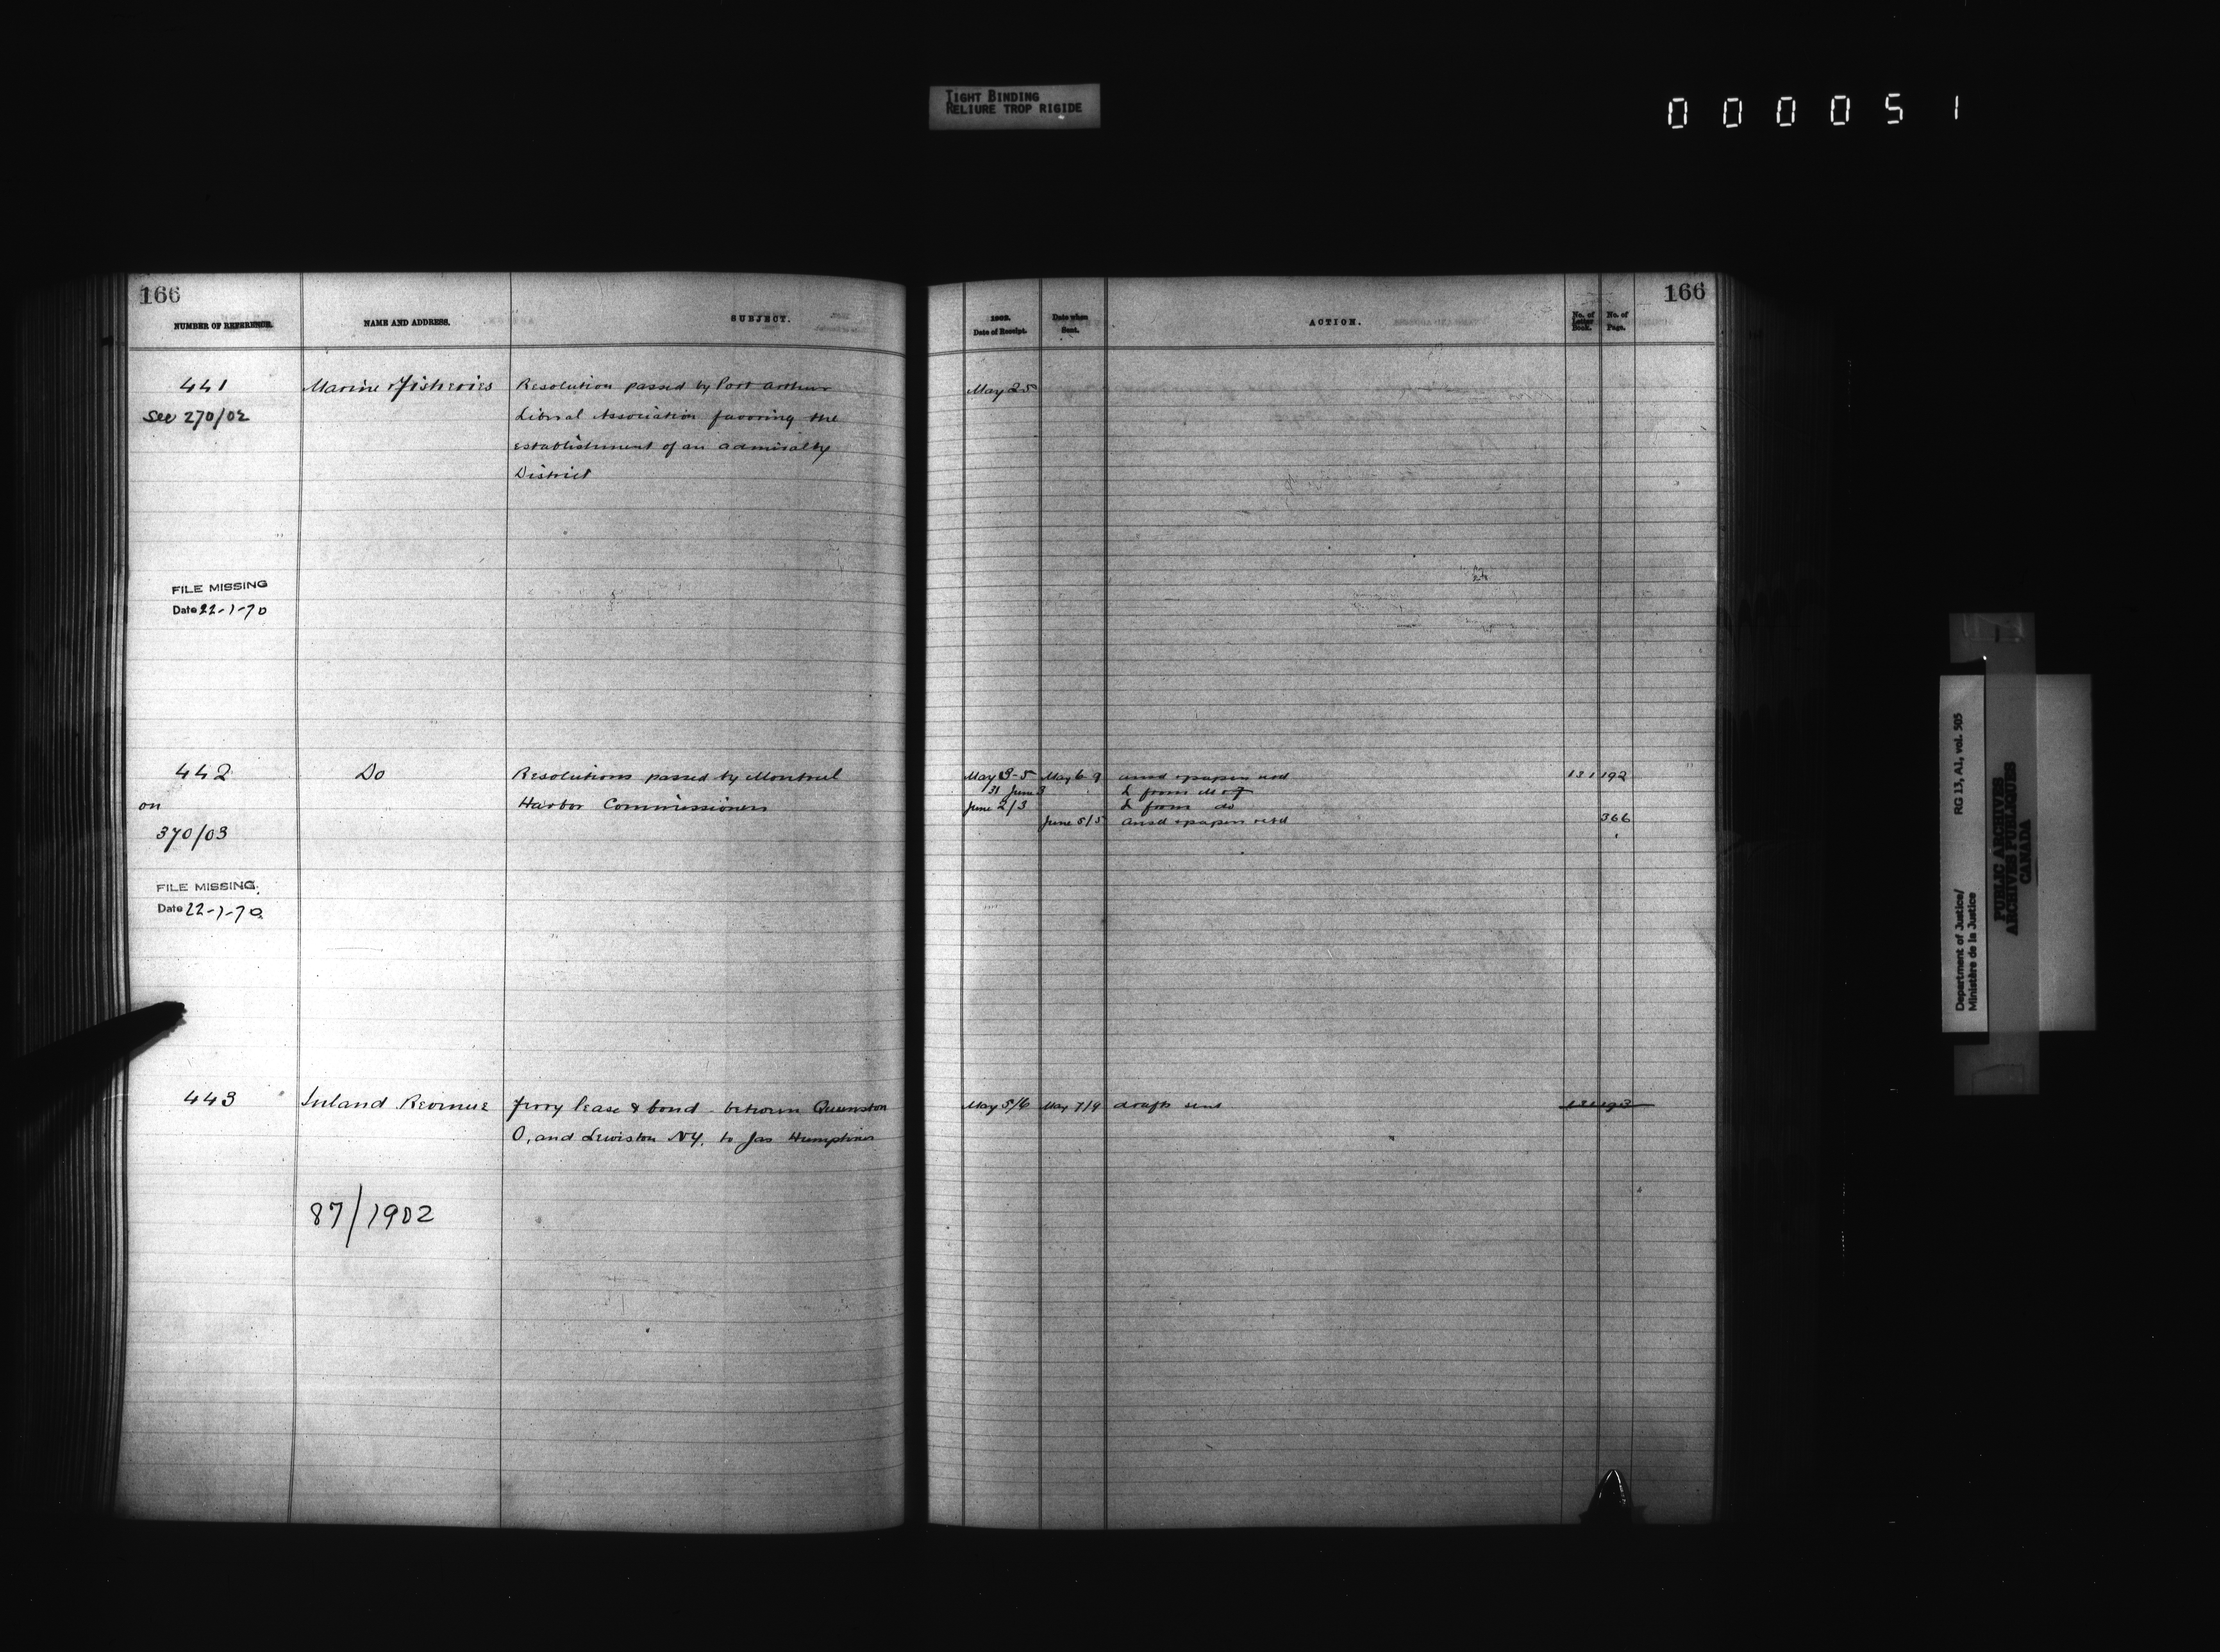 TIGHT BINDING
RELIURE TROP RIGIDE
000051
166
NUMBER OF REFERENCE.
NAME AND ADDRESS.
SUBJECT.
441
See 270/02
Marine & Fisheries
Resolution passed by Port Arthur
Liberal Association favoring the
establishment of an admiralty
District
FILE MISSING
Date 22-1-70
442
on
370/03
Do
Resolutions passed by Montreal
Harbor Commissioners
FILE MISSING
Date 22-1-70
443
Inland Revenue
ferry lease & bond - between Queenston
O, and Lewiston NY. to Jas Humphries
87/1902
166
1902.
Date of Receipt.
Date when
Sent.
ACTION.
No. of
Letter
Book.
No. of
Page.
May 25
May 3-5 May 6 9 ansd & papers retd 131 192
31 June 3 L from M & F
June 2/3 L from do
June 5/5 ansd & papers retd 366
May 5/6 May 7/9 drafts sent 131 193
Department of Justice/
Ministère de la Justice
RG 13, A1, vol. 505
PUBLIC ARCHIVES
ARCHIVES PUBLIQUES
CANADA